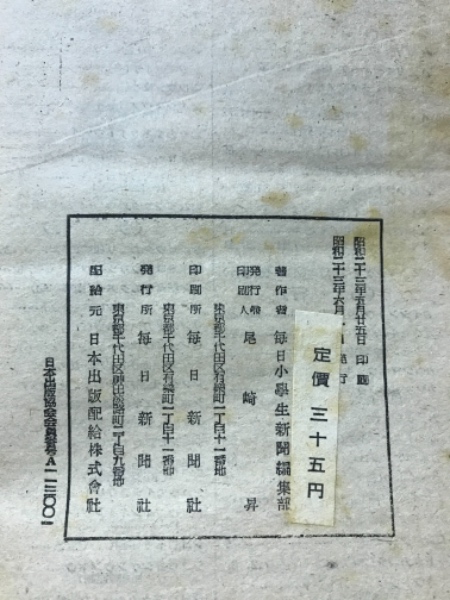 昭和二十三年五月廿五日 印刷
昭和二十三年六月 日 発行
定價 三十五円
著作者 毎日小學生新聞編集部
発行者 印刷人 尾崎昇
東京都千代田区有楽町一丁目十一番地
印刷所 毎日新聞社
東京都千代田区有楽町一丁目十一番地
発行所 毎日新聞社
東京都千代田区淡路町二丁目九番地
配給元 日本出版配給株式會社
日本出版協会会員番号A一一三〇〇一